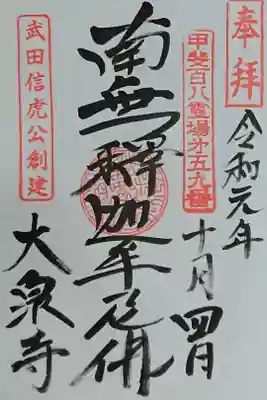 奉拝
令和元年
十月四日
甲斐百八霊場第五九番
南無釋迦牟尼佛
武田信虎公創建
大泉寺